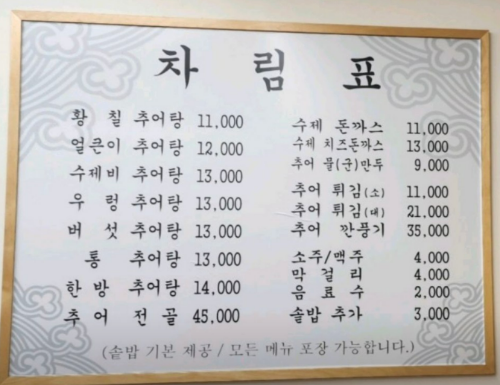 차림표
황칠 추어탕 11,000
얼큰이 추어탕 12,000
수제비 추어탕 13,000
우렁 추어탕 13,000
버섯 추어탕 13,000
통 추어탕 13,000
한방 추어탕 14,000
추어 전골 45,000
수제 돈까스 11,000
수제 치즈돈까스 13,000
추어 물(군)만두 9,000
추어 튀김(소) 11,000
추어 튀김(대) 21,000
추어 깐풍기 35,000
소주/맥주 4,000
막걸리 4,000
음료수 2,000
솥밥 추가 3,000
(솥밥 기본 제공 / 모든 메뉴 포장 가능합니다.)